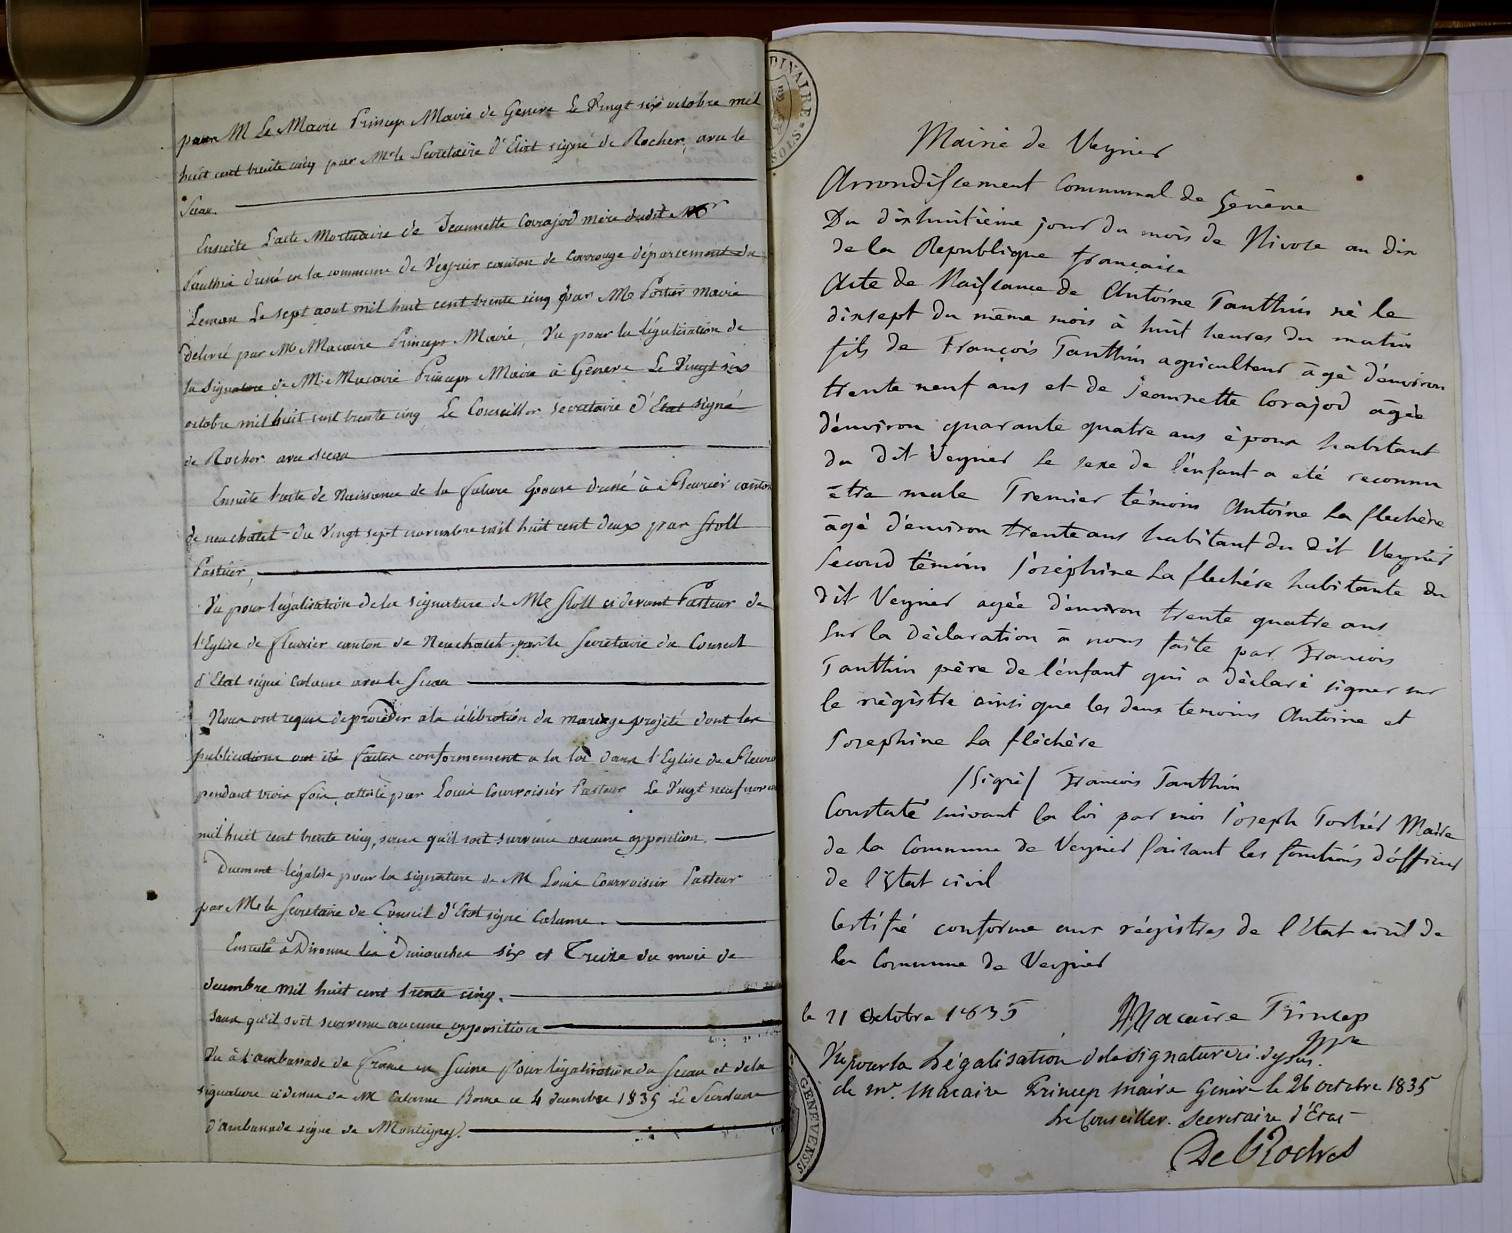 pour M Le Mavie Princep Mavie de Geneve Le Vingt six octobre mil
huit cent trente cinq par Mr le Secretaire d'Etat signé de Rocher, avec le
Sceau.
Ensuite L'acte Mortuaire de Jeannette Corajod mère dudit Mr
Panthin dressé en la commune de Veyrier canton de Carrouge département du
Leman Le sept aout mil huit cent trente cinq par M Portier mavie
delivré par M Macaire Princeps Mavie, Vu pour la légalisation de
la Signature de Mr Macaire Princeps Mavie à Geneve Le Vingt six
octobre mil huit cent trente cinq Le Conseiller secretaire d'Etat signé
de Rocher avec sceau
Ensuite l'acte de Naissance de la future Epouse dressé à Fleurier canton
de neuchatel du Vingt sept novembre mil huit cent deux par Stoll
Pasteur,
Vu pour légalisation de la signature de Mr Stoll ci devant Pasteur de
l'Eglise de fleurier canton de Neuchatel par le Secretaire du Conseil
d'Etat signé Calame avec le Sceau
Nous ont requis de procéder à la célébration du mariage projeté dont les
publications ont été faites conformement a la loi dans l'Eglise de Fleurier
pendant trois fois, attesté par Louis Courvoisier Pasteur Le Vingt neuf novem
mil huit cent trente cinq, sans qu'il soit survenu aucune opposition.
Dument légalisé pour la signature de M Louis Courvoisier Pasteur
par Mr le Secretaire de Conseil d'Etat signé Calame.
Ensuite à Divonne les Dimanches six et Treize du mois de
decembre mil huit cent trente cinq.
sans qu'il soit survenu aucune opposition
Vu à l'ambassade de france en Suisse pour légalisation du sceau et de la
signature ci dessus de M Calame Berne ce 4 decembre 1835 Le Secretaire
d'ambassade signé de Montigny.
Mairie de Veyrier
Arrondissement Communal de Genève
Du dixhuitième jour du mois de Nivose an dix
de la Republique française
Acte de Naissance de Antoine Panthin né le
dixsept du même mois à huit heures du matin
fils de François Panthin agriculteur âgé d'environ
trente neuf ans et de Jeannette Corajod âgée
d'environ quarante quatre ans époux habitant
du dit Veyrier Le sexe de l'enfant a eté reconnu
être male Premier témoin Antoine La fléchère
âgé d'environ trente ans habitant du dit Veyrier
Second témoin Joséphine La fléchère habitante du
dit Veyrier agée d'environ trente quatre ans
Sur la Déclaration à nous faite par François
Panthin père de l'enfant qui a déclaré signer sur
le régistre ainsi que les deux temoins Antoine et
Josephine La fléchère
/Signé/ François Panthin
Constaté suivant la loi par moi Joseph Portiér Maire
de la Commune de Veyrier faisant les fonctions d'officier
de l'Etat civil
Certifié conforme aux régistres de l'Etat civil de
la Commune de Veyrier
le 21 Octobre 1835 Macaire Princep
Vu pour la Légalisation de la signature ci-dessus
de mr. Macaire Princep maire Genève le 26 octobre 1835
Le Conseiller. Secretaire d'Etat
De Roches
GENEVENSIS